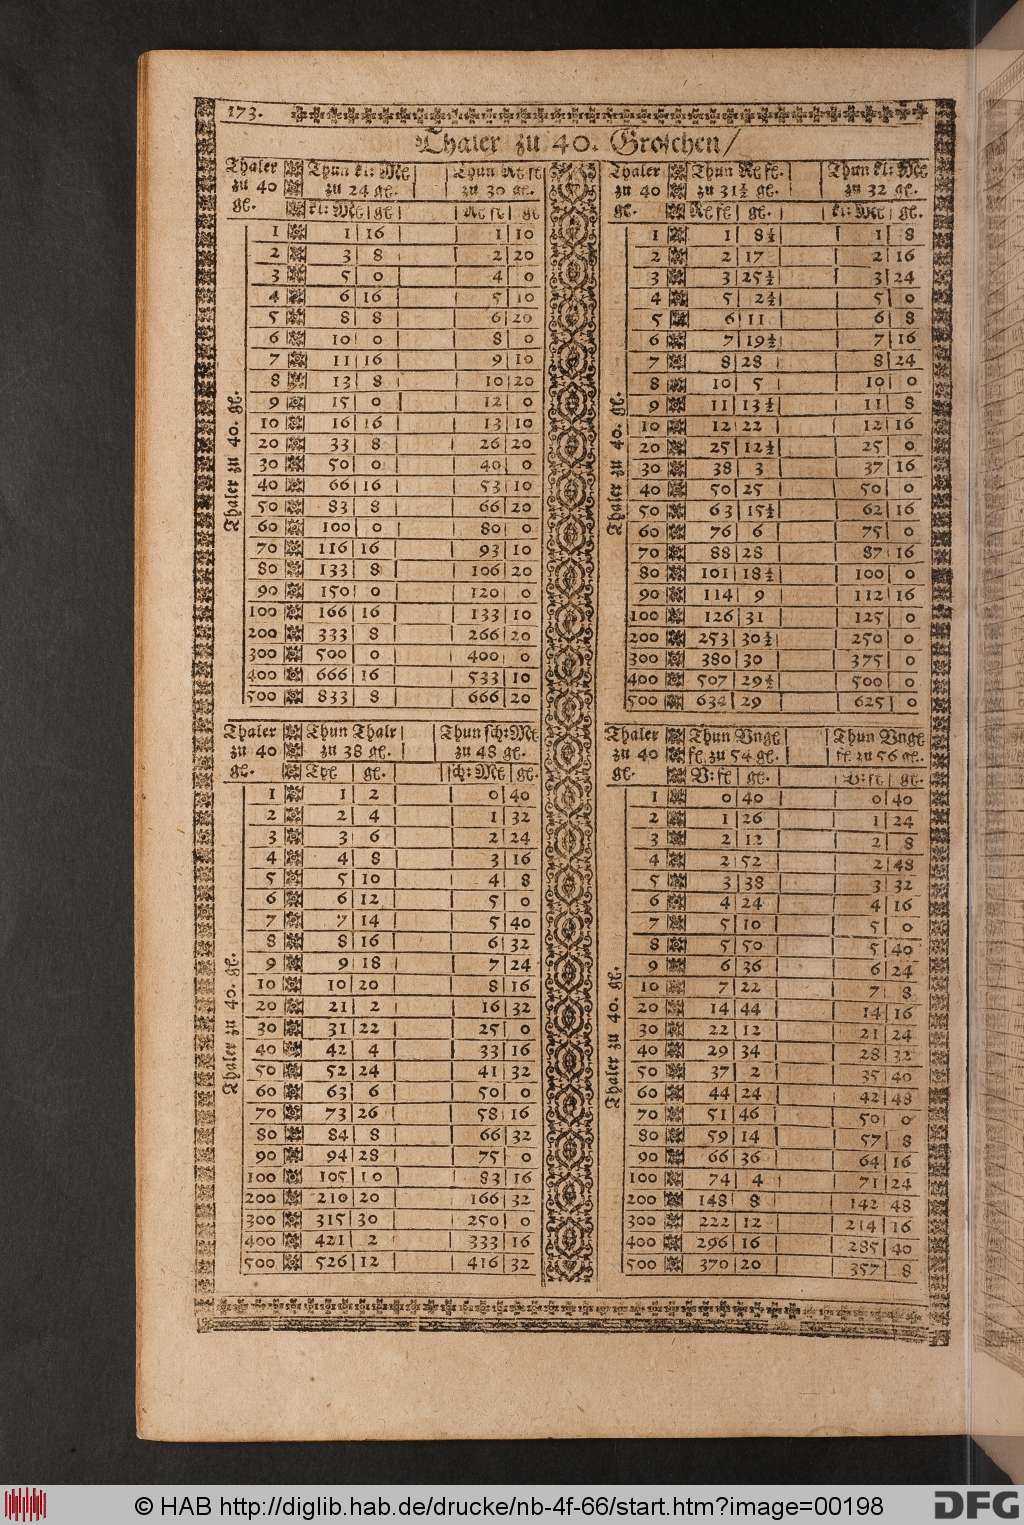 173.
Thaler zu 40. Groschen/
Thaler zu 40 gl. Thun kl: Mℓ zu 24 gl. Thun Rℓ fl zu 30 gl.
kl: Mℓ gl Rℓ fl gl
Thaler zu 40. gl.
1 1 16 1 10
2 3 8 2 20
3 5 0 4 0
4 6 16 5 10
5 8 8 6 20
6 10 0 8 0
7 11 16 9 10
8 13 8 10 20
9 15 0 12 0
10 16 16 13 10
20 33 8 26 20
30 50 0 40 0
40 66 16 53 10
50 83 8 66 20
60 100 0 80 0
70 116 16 93 10
80 133 8 106 20
90 150 0 120 0
100 166 16 133 10
200 333 8 266 20
300 500 0 400 0
400 666 16 533 10
500 833 8 666 20
Thaler zu 40 gl. Thun Rℓ fl. zu 31½ gl. Thun kl: Mℓ zu 32 gl.
Rℓ fl gl. kl: Mℓ gl.
Thaler zu 40. gl.
1 1 8½ 1 8
2 2 17 2 16
3 3 25½ 3 24
4 5 2½ 5 0
5 6 11 6 8
6 7 19½ 7 16
7 8 28 8 24
8 10 5 10 0
9 11 13½ 11 8
10 12 22 12 16
20 25 12½ 25 0
30 38 3 37 16
40 50 25 50 0
50 63 15½ 62 16
60 76 6 75 0
70 88 28 87 16
80 101 18½ 100 0
90 114 9 112 16
100 126 31 125 0
200 253 30½ 250 0
300 380 30 375 0
400 507 29½ 500 0
500 634 29 625 0
Thaler zu 40 gl. Thun Thalr zu 38 gl. Thun sch: Mℓ zu 48 gl.
Tℓ gl. sch: Mℓ gl.
Thaler zu 40. gl.
1 1 2 0 40
2 2 4 1 32
3 3 6 2 24
4 4 8 3 16
5 5 10 4 8
6 6 12 5 0
7 7 14 5 40
8 8 16 6 32
9 9 18 7 24
10 10 20 8 16
20 21 2 16 32
30 31 22 25 0
40 42 4 33 16
50 52 24 41 32
60 63 6 50 0
70 73 26 58 16
80 84 8 66 32
90 94 28 75 0
100 105 10 83 16
200 210 20 166 32
300 315 30 250 0
400 421 2 333 16
500 526 12 416 32
Thaler zu 40 gl. Thun Vngl fl. zu 54 gl. Thun Vngl fl. zu 56 gl.
V: fl gl. V: fl gl.
Thaler zu 40. gl.
1 0 40 0 40
2 1 26 1 24
3 2 12 2 8
4 2 52 2 48
5 3 38 3 32
6 4 24 4 16
7 5 10 5 0
8 5 50 5 40
9 6 36 6 24
10 7 22 7 8
20 14 44 14 16
30 22 12 21 24
40 29 34 28 32
50 37 2 35 40
60 44 24 42 48
70 51 46 50 0
80 59 14 57 8
90 66 36 64 16
100 74 4 71 24
200 148 8 142 48
300 222 12 214 16
400 296 16 285 40
500 370 20 357 8
© HAB http://diglib.hab.de/drucke/nb-4f-66/start.htm?image=00198
DFG